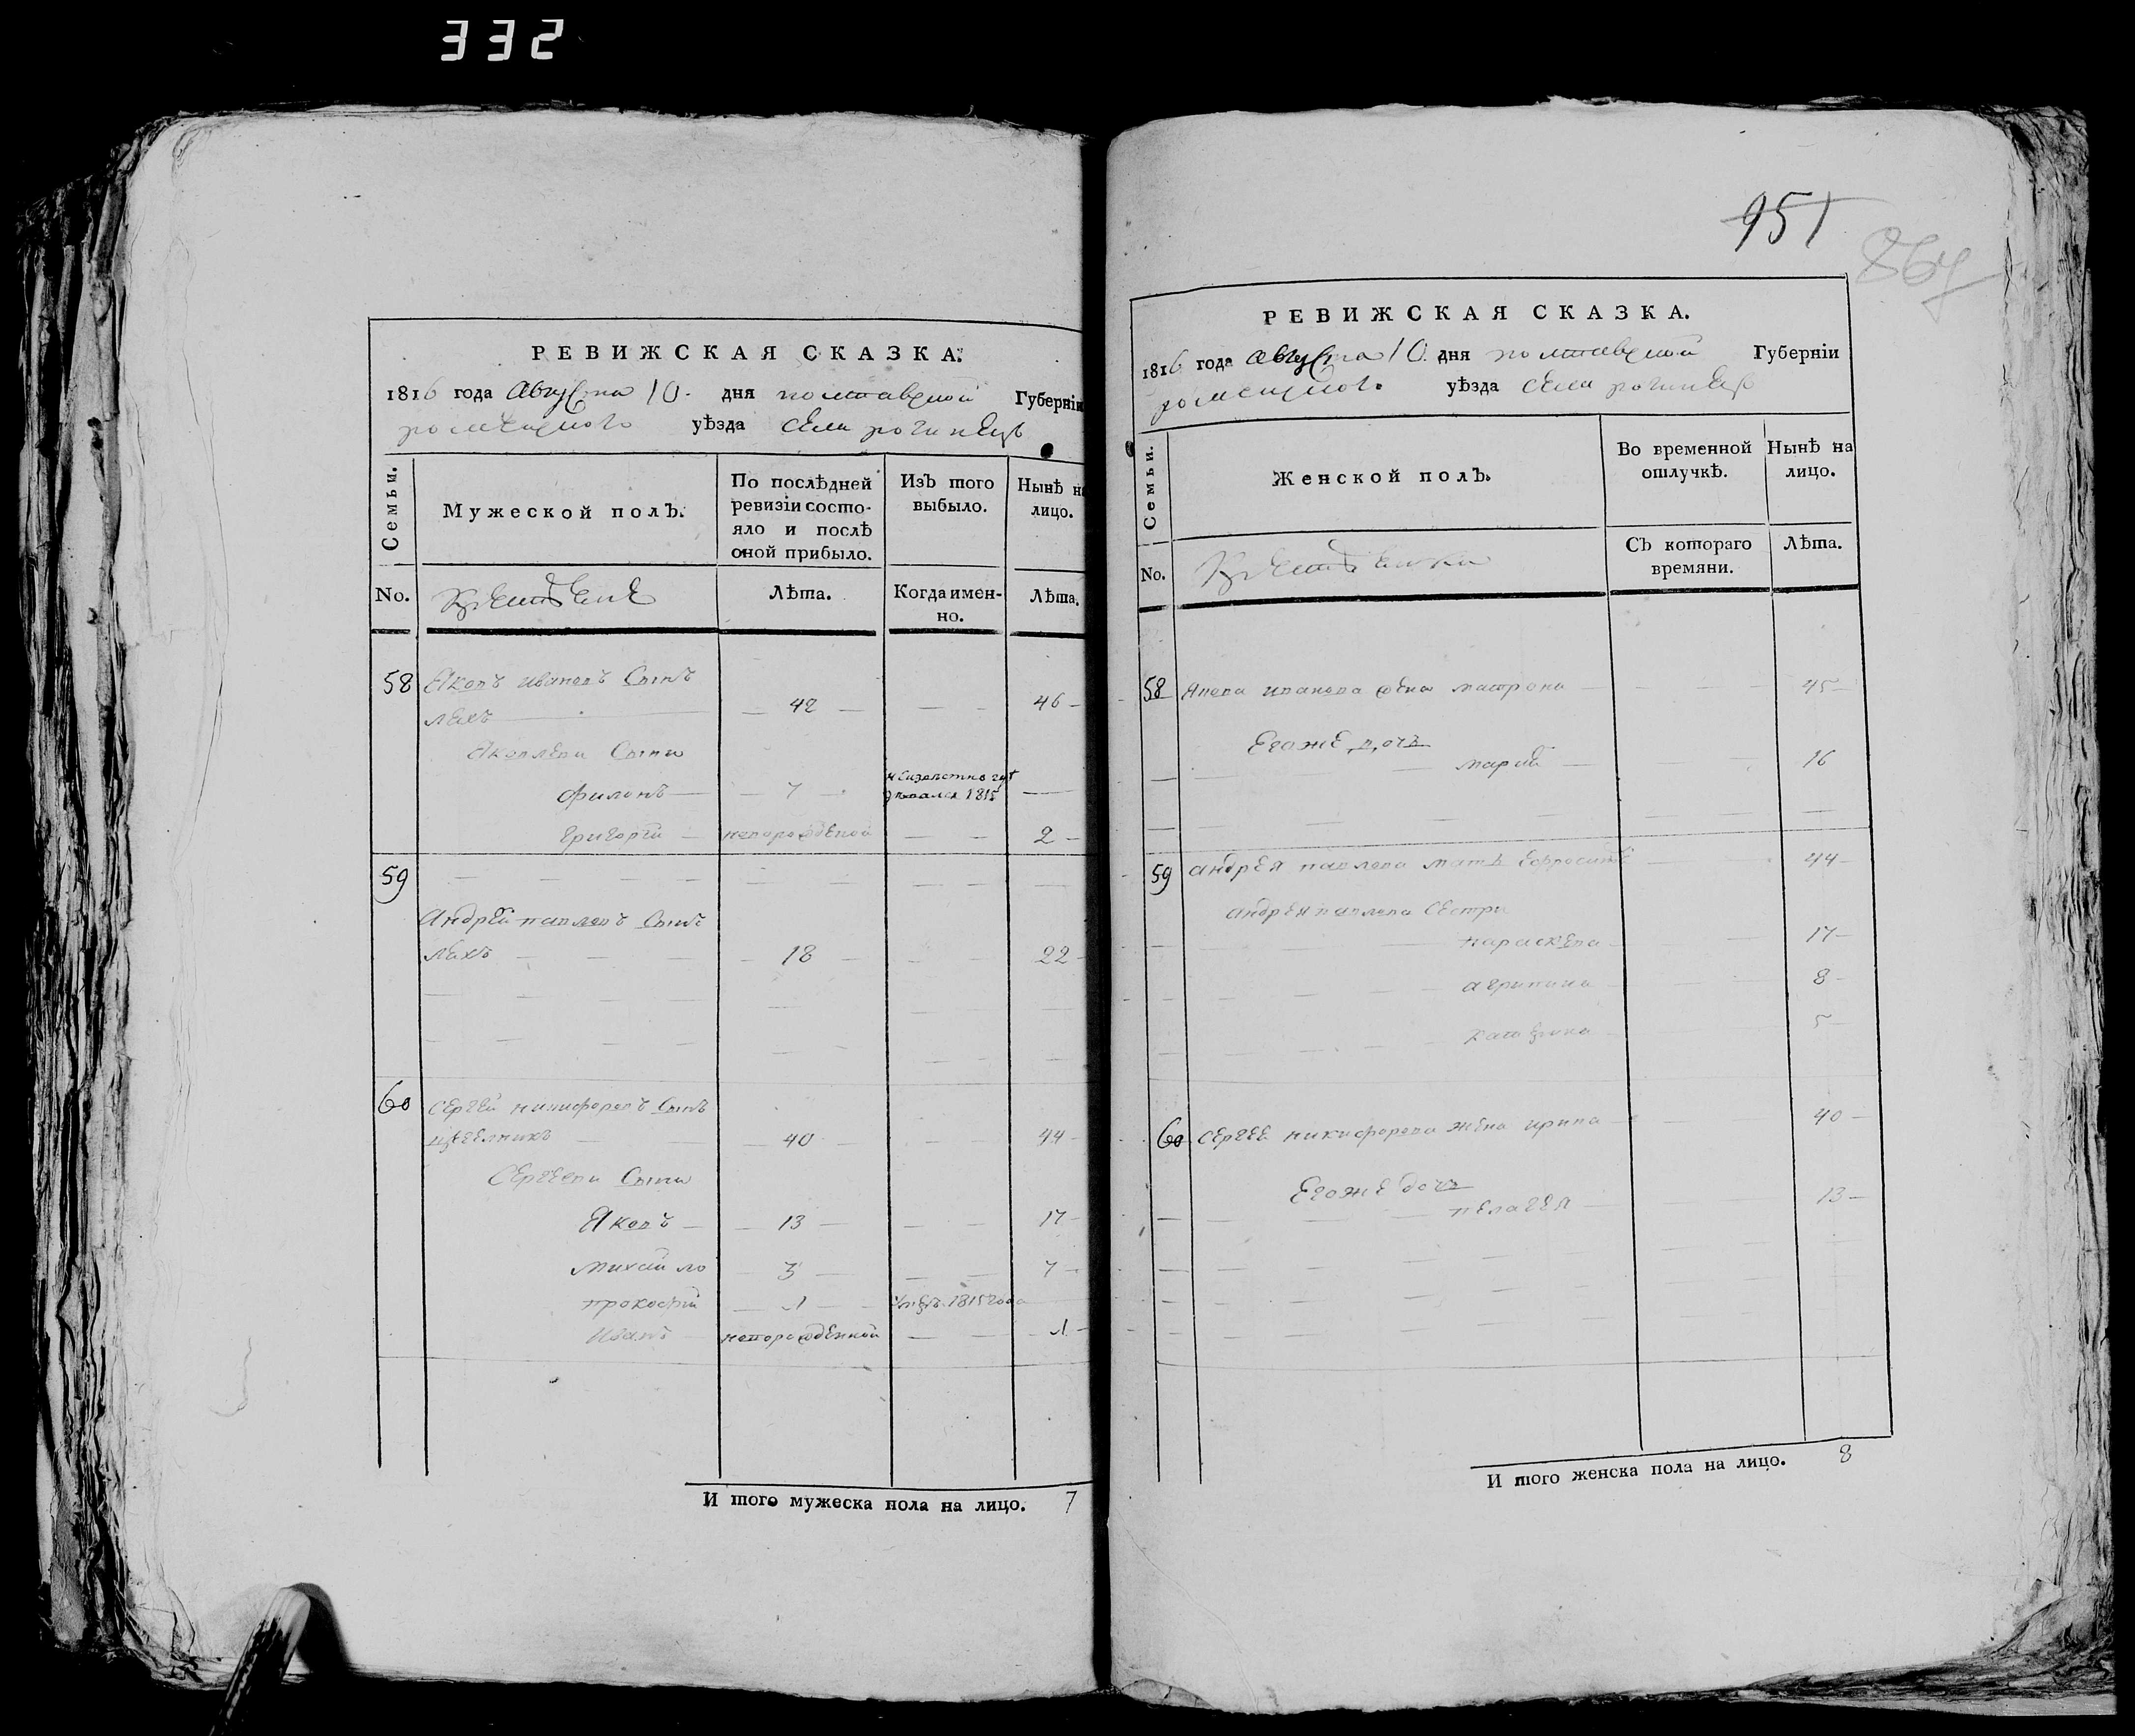 332
РЕВИЖСКАЯ СКАЗКА.
1816 года августа 10. дня полтавской Губерніи
роменского уѣзда села рогинецъ
Семьи.
Мужеской полъ.
По послѣдней ревизіи состояло и послѣ оной прибыло.
Изъ того выбыло.
Нынѣ на лицо.
No.
Лѣта.
Когда именно.
Лѣта.
58 Яковъ ивановъ Сынъ
ляхъ 42 46
Яковлеви Сыны
филонъ 7 1815
григорій новорожденой 2
59
Андрей павловъ Сынъ
ляхъ 18 22
60 Сергей никифоровъ Сынъ
40 44
Сергеєви Сыны
Яковъ 13 17
михайло 3 7
прокофій 1 1815 года
иванъ новорожденной 1
И того мужеска пола на лицо. 7
951
864
РЕВИЖСКАЯ СКАЗКА.
1816 года августа 10. дня полтавской Губерніи
роменского уѣзда села рогинецъ
Семьи.
Женской полъ.
Во временной отлучкѣ.
Нынѣ на лицо.
No.
Съ котораго времяни.
Лѣта.
58 Якова иванова жена матрона 45
Егоже дочь
марія 16
59 андрея павлова мать Ефросинія 44
андрея павлова Сестри
параскева 17
агрипина 8
катерина 5
60 Сергея никифорова жена ирина 40
Егоже дочь
пелагея 13
И того женска пола на лицо. 8